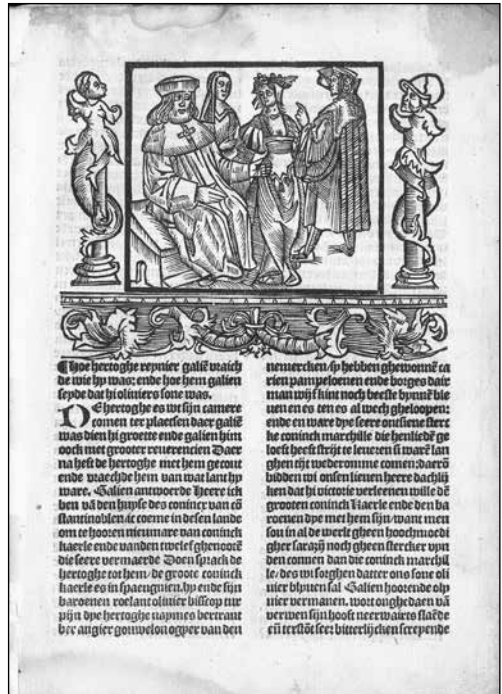 ¶Hoe hertoghe reynier galiē vraich
de wie hy was: ende hoe hem galien
seyde dat hi oliviers sone was.
DE hertoghe es wt sijn camere
comen ter plaetsen daer galiē
was dien hi groette ende galien him
oock met grooter reverencien Daer
na heft de hertoghe met hem gecout
ende vraechde hem van wat lant hy
ware. Galien antwoerde Heere ick
ben vā den huyse des conincx van cō
stantinoblen/ic coeme in desen lande
om te hooren nieumare van coninck
kaerle ende vanden twelef ghenootē
die seere vermaerde Doen sprack de
hertoghe tot hem/de groote coninck
kaerle es in spaengnien/hy ende sijn
baroenen roelant olivier bisscop tur
pijn dye hertoghe naymes bertrant
ber angier gouwelon ogyer van den
nemercken/sy hebben ghewonnē ca
rien pampeloenen ende borges dair
man wijf kint noch beeste bynnē ble
ven en es ten es al wech gheloopen:
ende en ware dye seere ontsiene sterc
ke coninck marchille die hen liedē ge
loeft heeft strijt te leveren si warē lan
ghen tijt wederomme comen: daerō
bidden wi onsen lieven heere dachlij
ken dat hi victorie verleenen wille dē
grooten coninck Kaerle ende den ba
roenen dye met hem sijn/want men
sou in al de werlt gheen hoochmoedi
gher sarazijn noch gheen stercker vyn
den connen dan die coninck marchil
le/des wi sorghen datter ons sone oli
vier blyven sal Galien hoorende oly
vier vermanen. wort onghedaen vā
verwen sijn hooft neerwairts slaēde
eñ terstōt seer bitterlijcken screyende